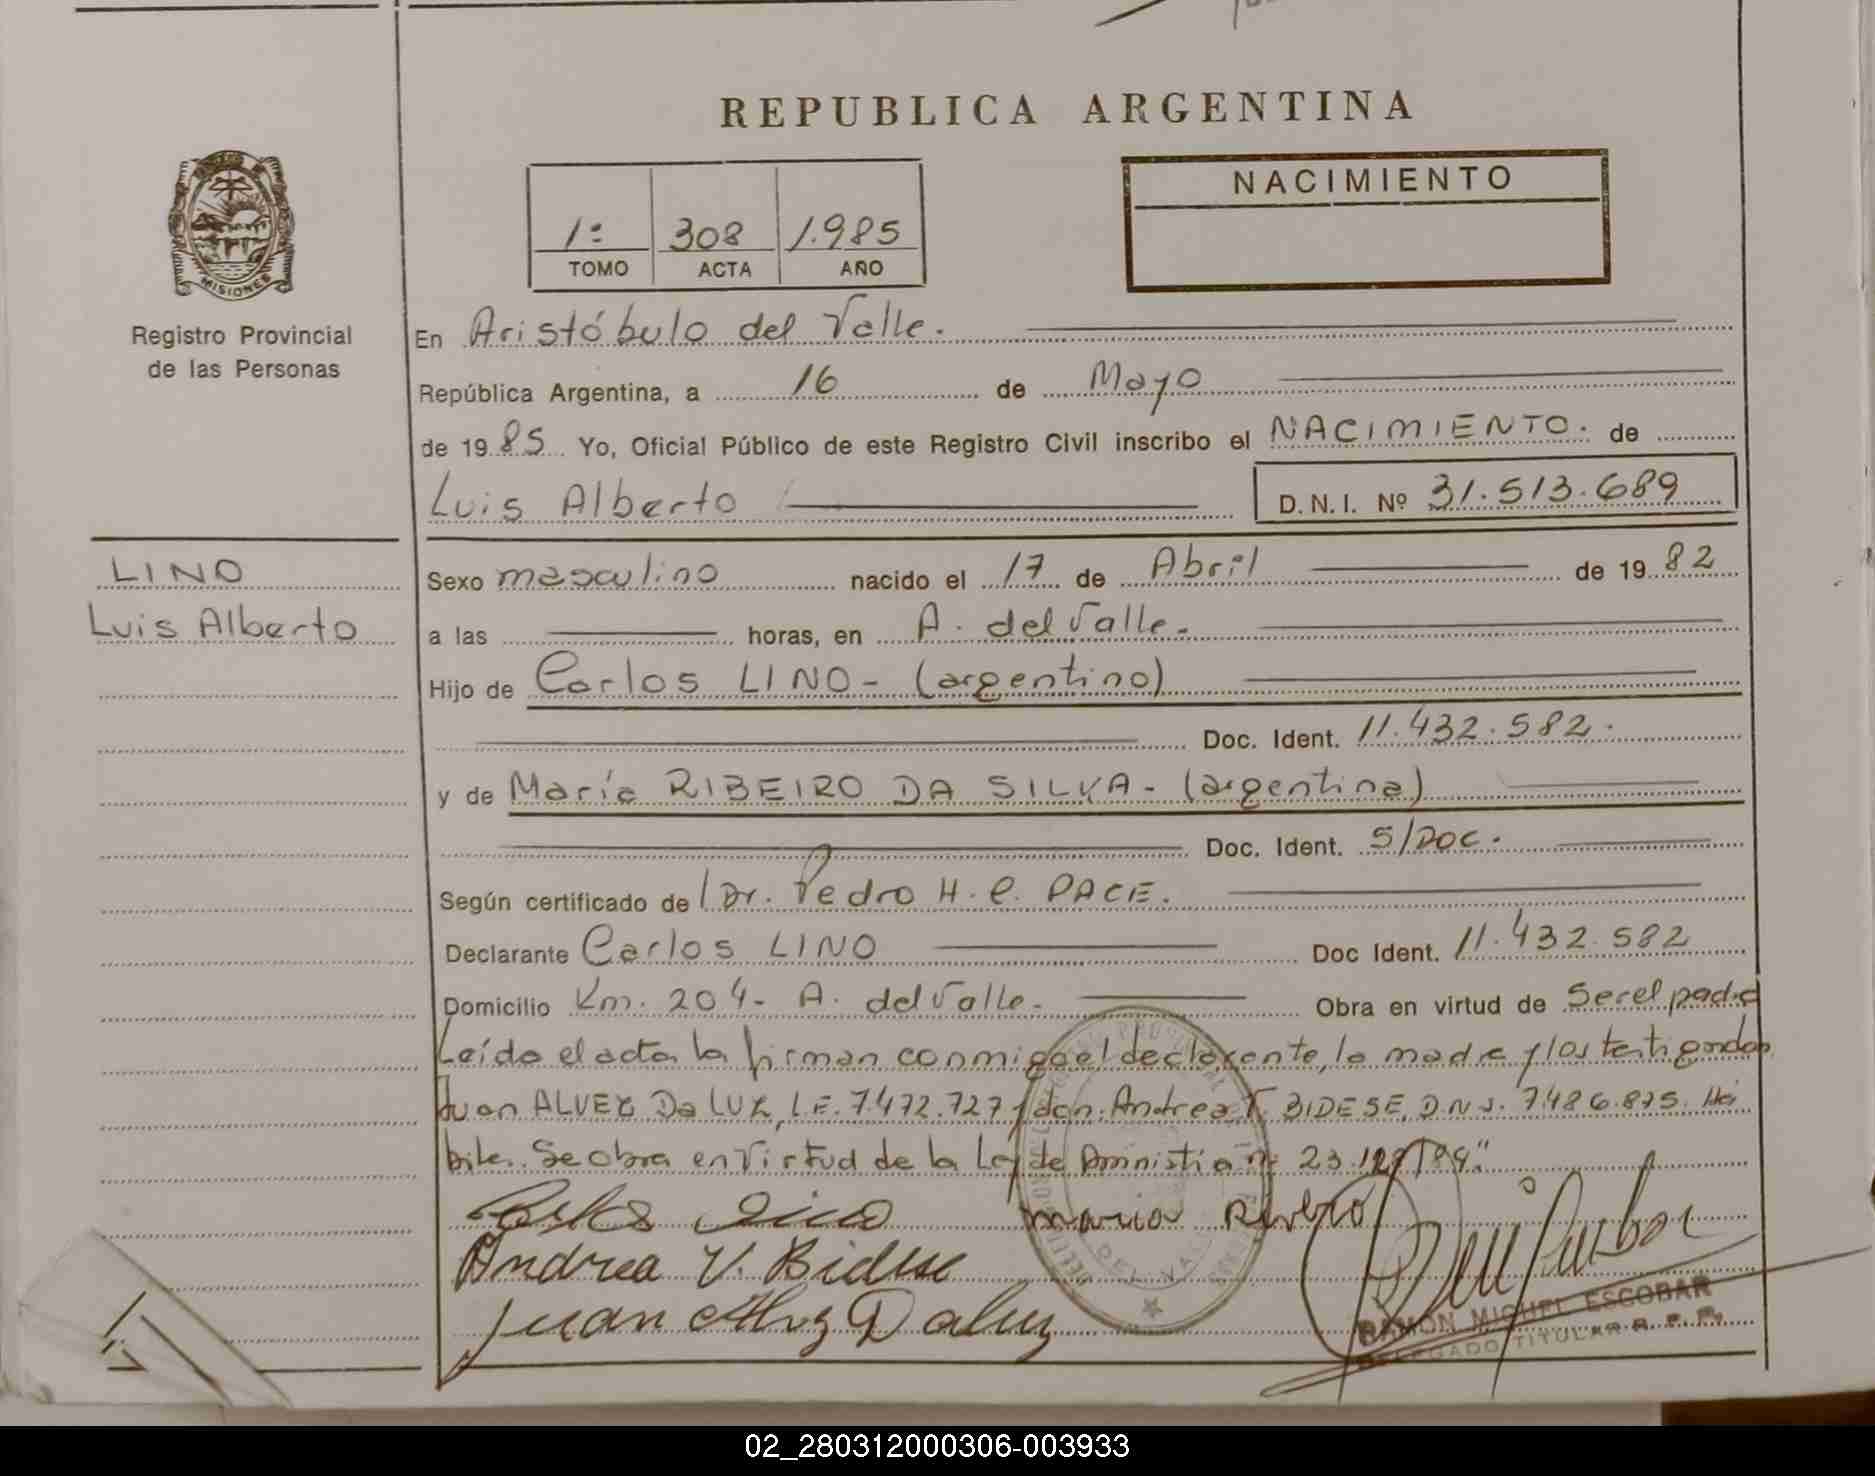 REPUBLICA ARGENTINA
NACIMIENTO
1º 308 1.985
TOMO ACTA AÑO
MISIONES
Registro Provincial
de las Personas
En Aristóbulo del Valle.
República Argentina, a 16 de Mayo
de 1985 Yo, Oficial Público de este Registro Civil inscribo el NACIMIENTO. de
Luis Alberto D.N.I. Nº 31.513.689
LINO
Luis Alberto
Sexo masculino nacido el 17 de Abril de 1982
a las horas, en A. del Valle.
Hijo de Carlos LINO- (argentino)
Doc. Ident. 11.432.582.
y de María RIBEIRO DA SILVA- (argentina)
Doc. Ident. S/DOC.
Según certificado de Dr. Pedro H. C. PACE.
Declarante Carlos LINO Doc Ident. 11.432.582
Domicilio Km. 204- A. del Valle- Obra en virtud de Ser el padre
Leída el acta la firman conmigo el declarante, la madre y los testigos don
Juan ALVEZ Da LUZ, L.E. 7.472.727 y don: Andrea V. BIDESE, D.N.I. 7.486.875. Há
biles. Se obra en virtud de la Ley de Amnistía nº 23.
Carlos Lino maria Rivero
Andrea V. Bidese
Juan Alvez Da luz
RAMON MIGUEL ESCOBAR
DELEGADO TITULAR R. P. P.
02_280312000306-003933